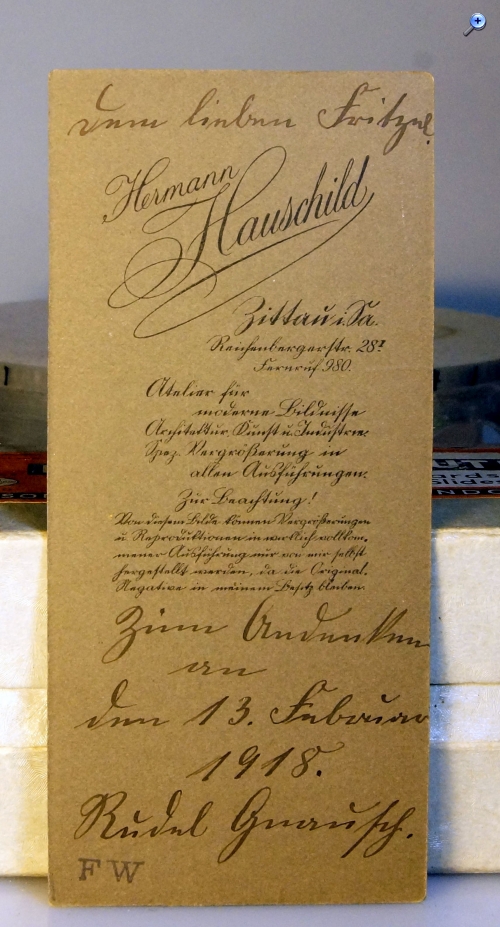 dem lieben Fritzel
Hermann
Hauschild
Zittau i. Sa.
Reichenbergerstr. 28 I
Fernruf 980.
Atelier für
moderne Bildnisse
Architektur, Kunst u. Industrie.
Spez. Vergrößerung in
allen Ausführungen.
Zur Beachtung!
Von diesem Bilde können Vergrößerungen
u. Reproduktionen in wirklich vollkom-
mener Ausführung nur von mir selbst
hergestellt werden, da die Original-
Negative in meinem Besitz bleiben.
Zum Andenken
an
den 13. Februar
1918.
Rudel Gnausch.
FW
UT